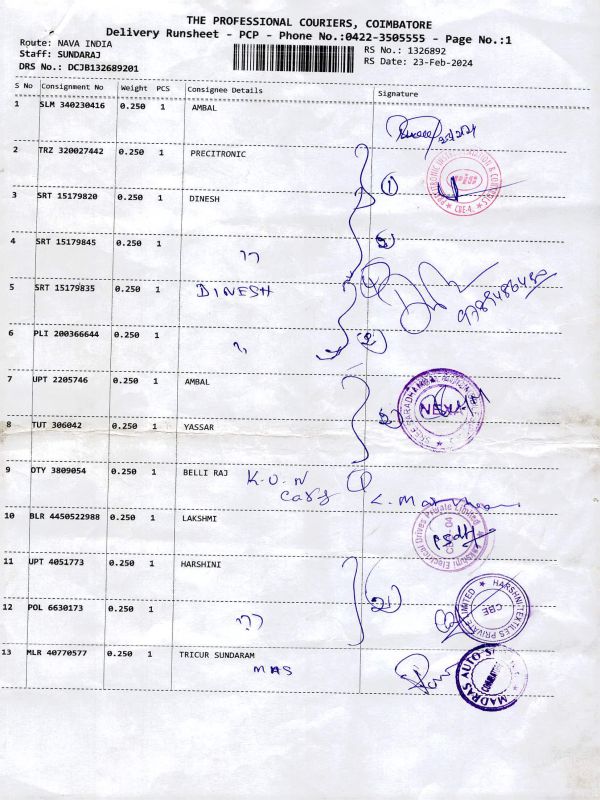 THE PROFESSIONAL COURIERS, COIMBATORE
Delivery Runsheet - PCP - Phone No.:0422-3505555 - Page No.:1
Route: NAVA INDIA RS No.: 1326892
Staff: SUNDARAJ RS Date: 23-Feb-2024
DRS No.: DCJB132689201
S No Consignment No Weight PCS Consignee Details Signature
1 SLM 340230416 0.250 1 AMBAL
2 TRZ 320027442 0.250 1 PRECITRONIC
3 SRT 15179820 0.250 1 DINESH 1
4 SRT 15179845 0.250 1 ״
5 SRT 15179835 0.250 1 DINESH
9789486450
6 PLI 200366644 0.250 1 ״ 2
7 UPT 2205746 0.250 1 AMBAL
8 TUT 306042 0.250 1 YASSAR 2
9 DTY 3809054 0.250 1 BELLI RAJ K.U.N 1
10 BLR 4450522988 0.250 1 LAKSHMI
11 UPT 4051773 0.250 1 HARSHINI
HARSHNI TEXTILES PRIVATE LIMITED
CBE
12 POL 6630173 0.250 1 ״ 2
13 MLR 40770577 0.250 1 TRICUR SUNDARAM
MAS
MADRAS AUTO